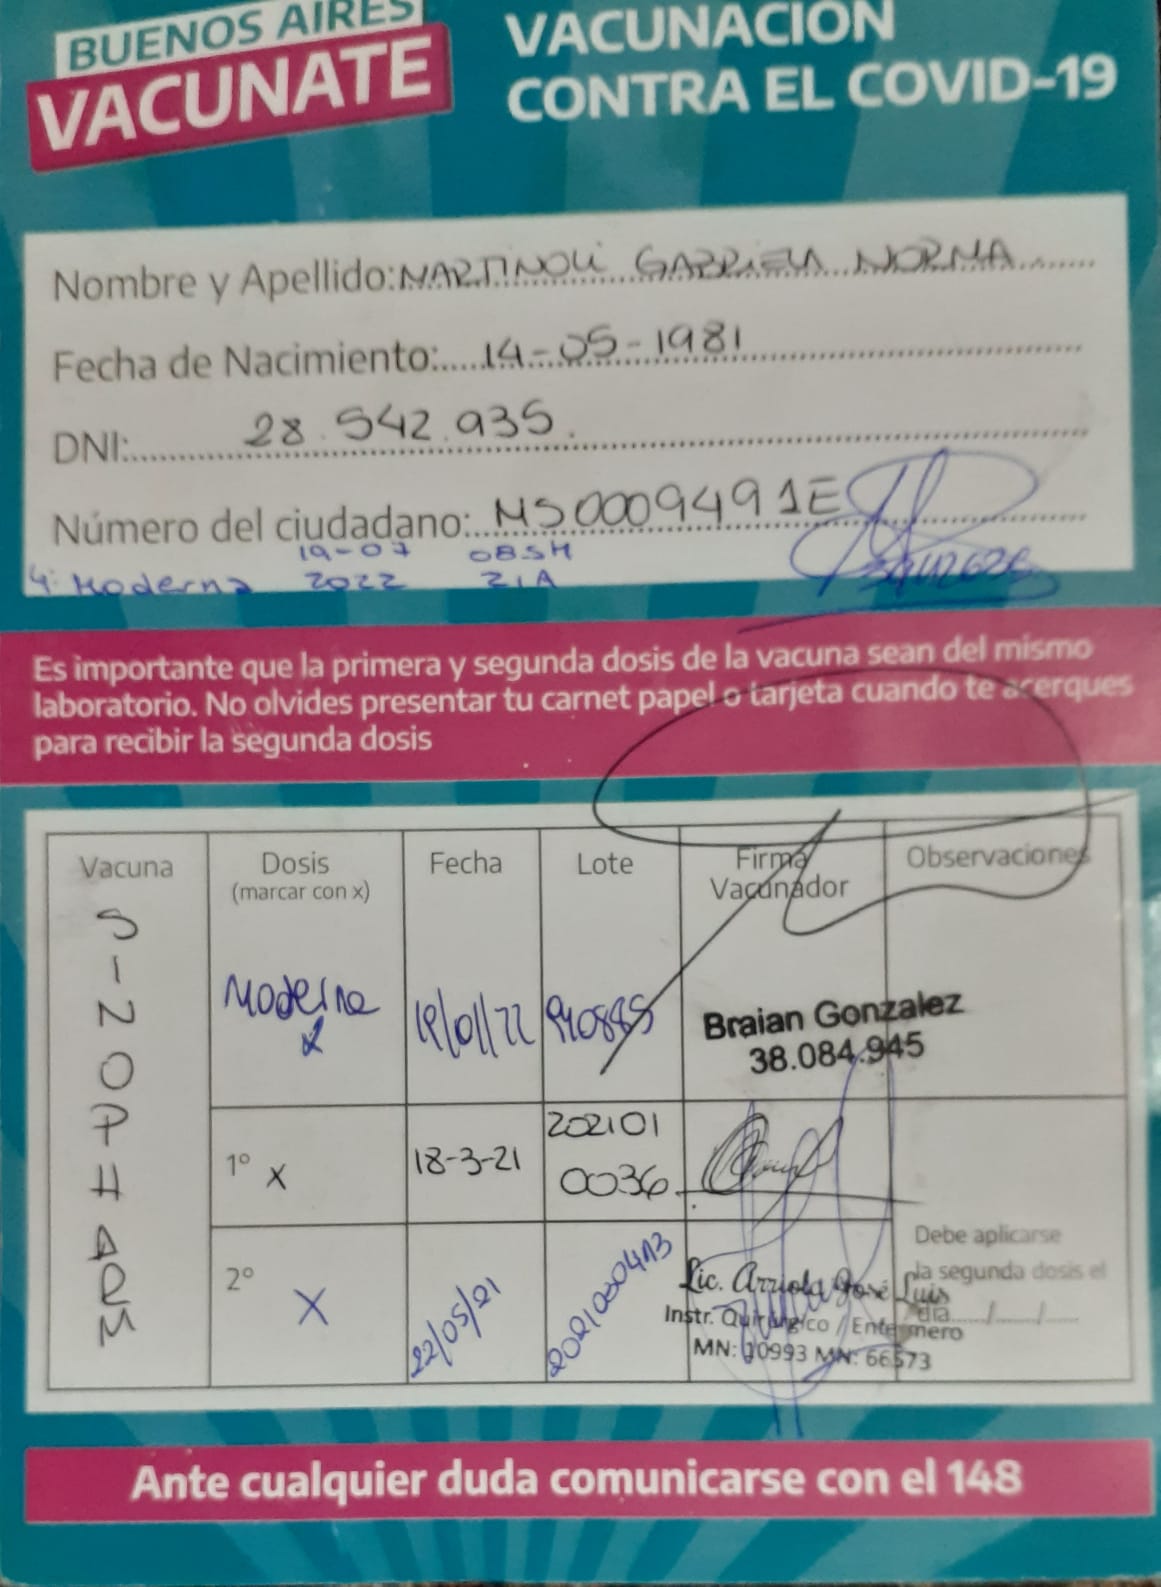 BUENOS AIRES
VACUNATE
VACUNACIÓN
CONTRA EL COVID-19
Nombre y Apellido: MARTINOLI GABRIELA NORMA
Fecha de Nacimiento: 14-05-1981
DNI: 28.542.935.
Número del ciudadano: MS0009491E
4° Moderna 19-07 2022 085H 21A
Es importante que la primera y segunda dosis de la vacuna sean del mismo
laboratorio. No olvides presentar tu carnet papel o tarjeta cuando te acerques
para recibir la segunda dosis
Vacuna Dosis (marcar con x) Fecha Lote Firma Vacunador Observaciones
Moderna x 19/01/22 940885 Braian Gonzalez
38.084.945
1° x 18-3-21 202101 0036
2° X 22/05/21
Lic. Arriola José Luis
Instr. Quirúrgico / Enfermero
MN: 10993 MN: 66573
Debe aplicarse
la segunda dosis el
día....../....../......
Ante cualquier duda comunicarse con el 148